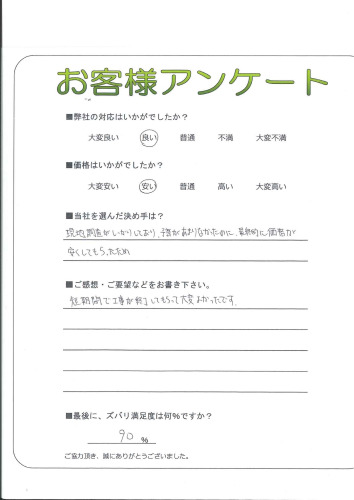 お客様アンケート
■弊社の対応はいかがでしたか？
大変良い 良い 普通 不満 大変不満
■価格はいかがでしたか？
大変安い 安い 普通 高い 大変高い
■当社を選んだ決め手は？
現地調査がしっかりしており、
安くしてもらったため
■ご感想・ご要望などをお書き下さい。
短期間で工事が終了してもらって大変よかったです。
■最後に、ズバリ満足度は何％ですか？
90 %
ご協力頂き、誠にありがとうございました。